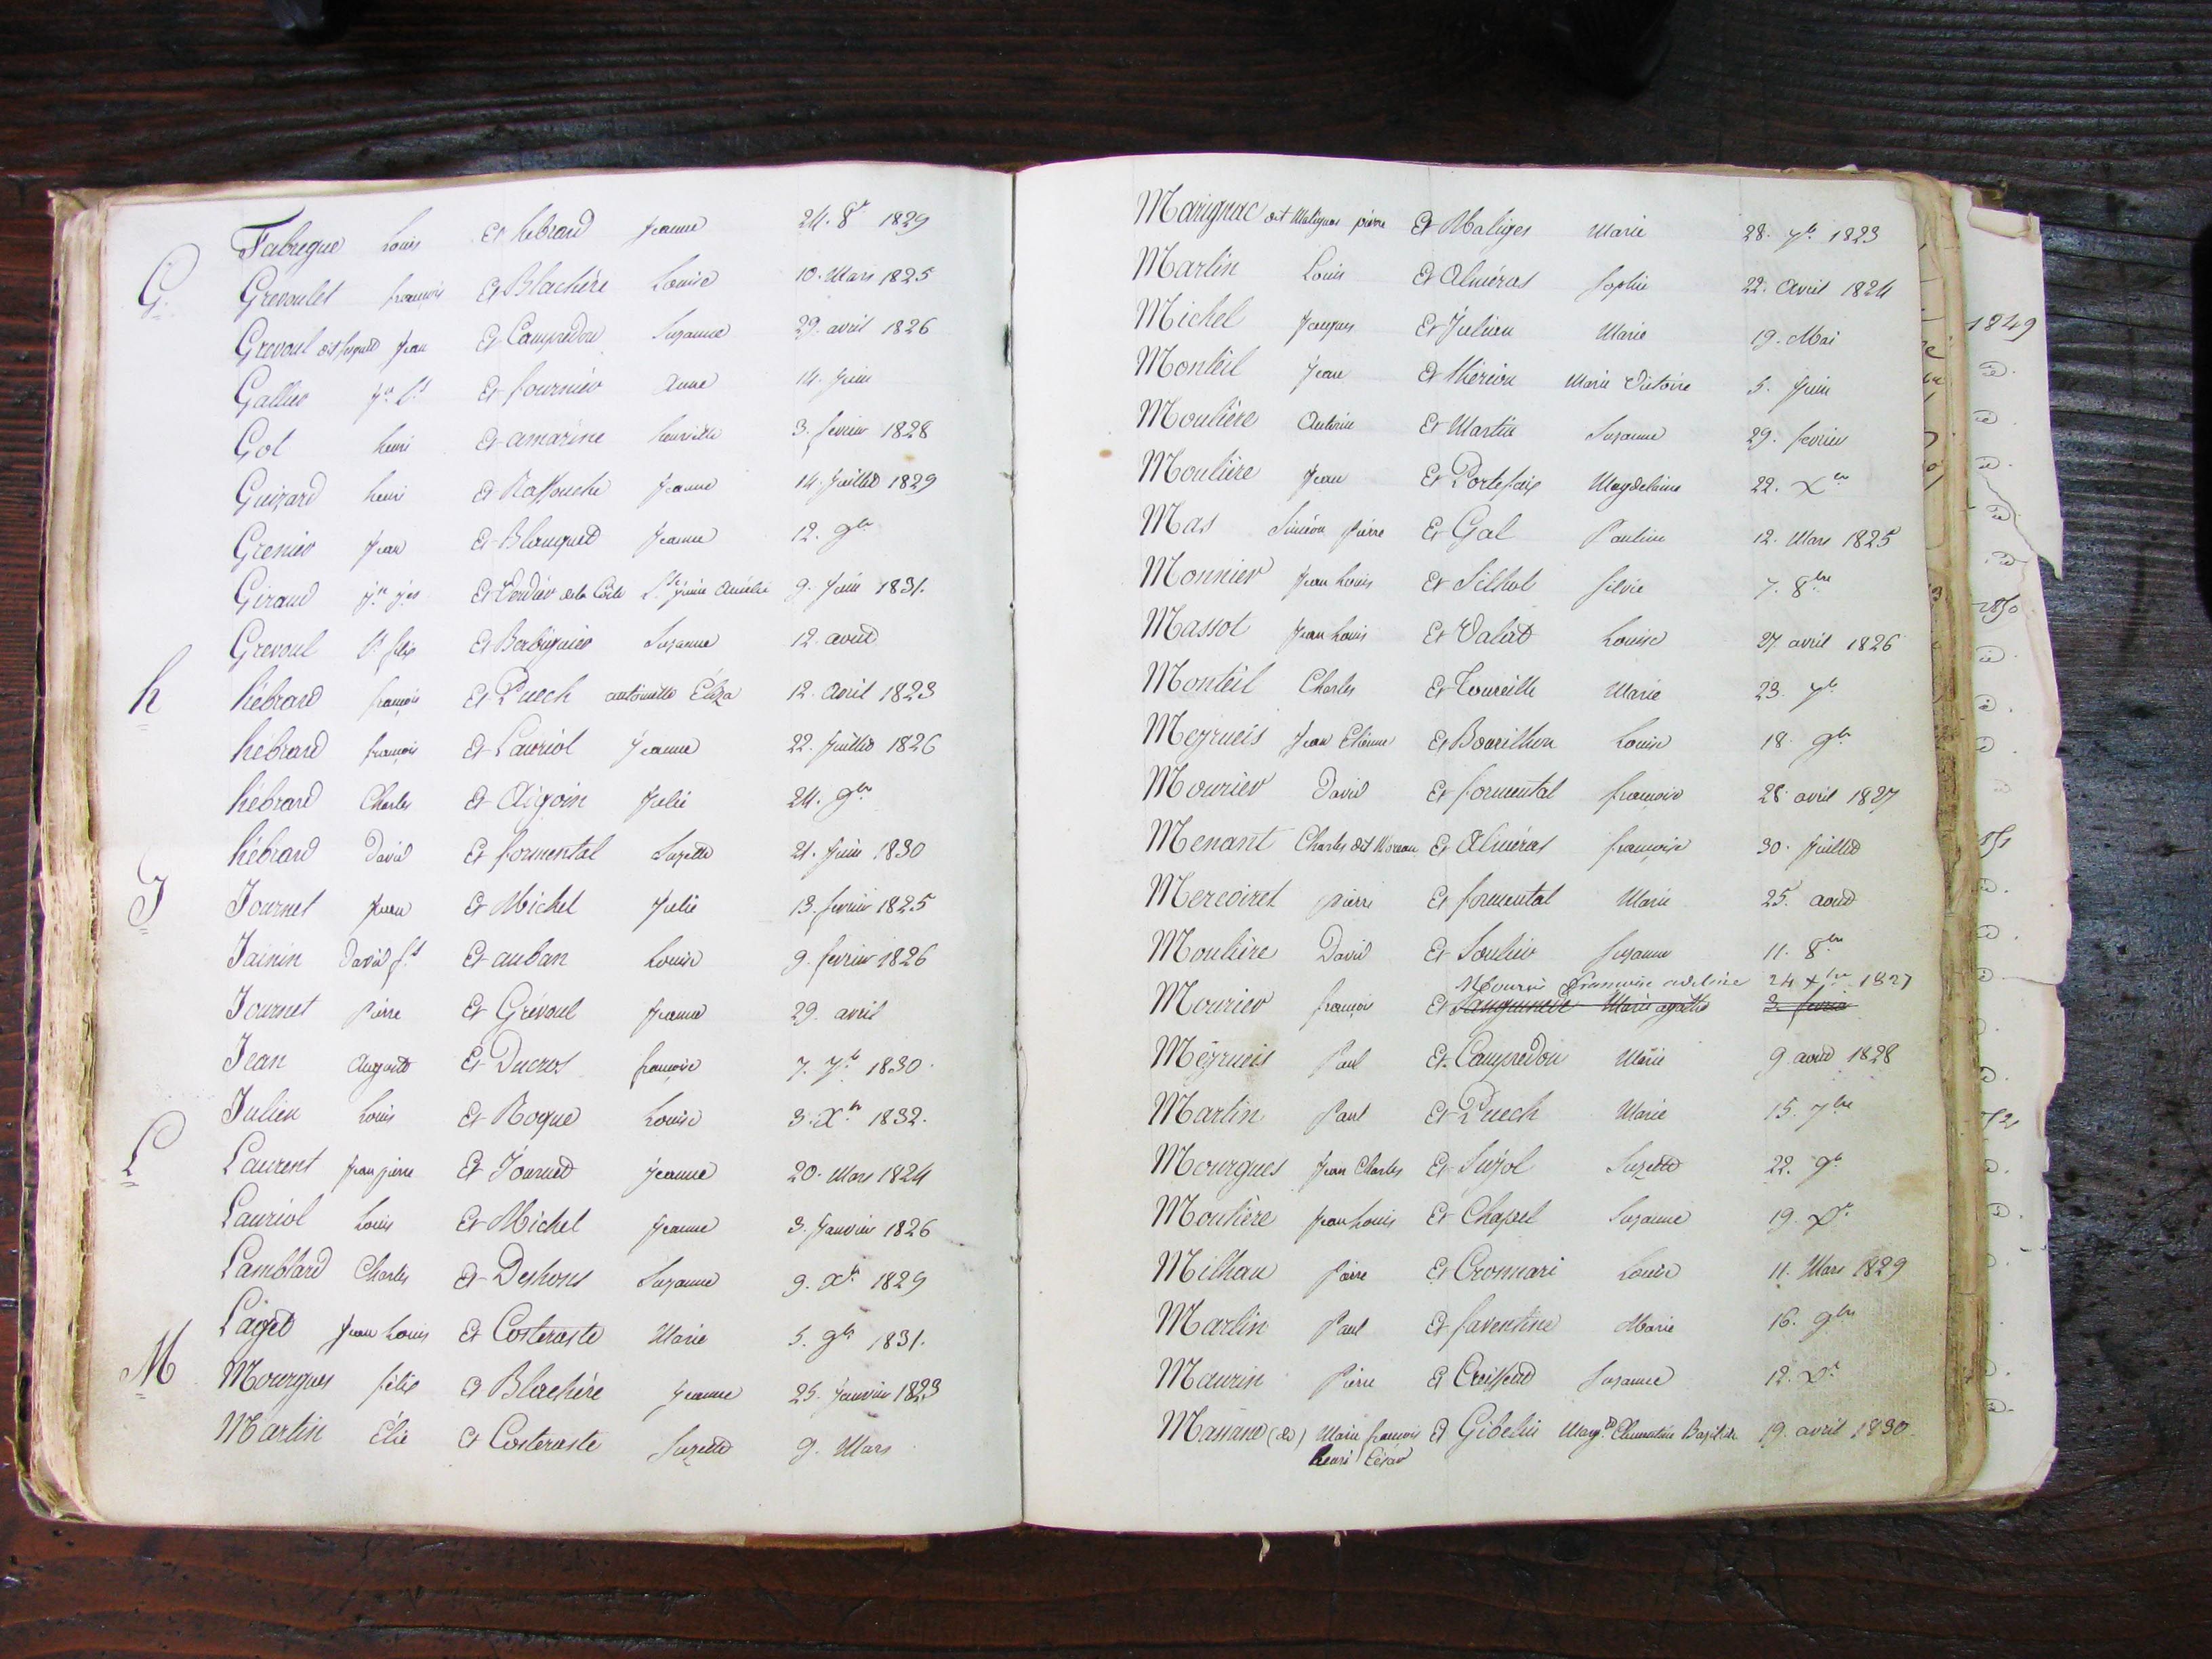 Fabregue Louis Et hebrard Jeanne 24. 8r 1829
G. Grevoulet françois Et Blachère Louise 10. Mars 1825
Grevoul dit Jean Et Campredon Suzanne 29. avril 1826
Gallier Jn Ls Et fournier Anne 14. Juin
Got henri Et amarine henriette 3. fevrier 1828
Guizard henri Et Rassouche Jeanne 14. Juillet 1829
Grenier Jean Et Blanquet Jeanne 12. 9br
Giraud Jn Jes Et Verdier de la Coste Amélie 9. Juin 1831.
Grevoul Ls felix Et Barbiguier Suzanne 12. aout
h hébrard françois Et Puech antoinette Eliza 12. avril 1823
hébrard françois Et Lauriol Jeanne 22. Juillet 1826
hébrard Charles Et Aigoin Julie 24. 9br
hébrard David Et formental Suzette 21. Juin 1830
J Journet Jean Et Michel Julie 13. fevrier 1825
Jainin David fs Et auban Louise 9. fevrier 1826
Journet Pierre Et Grévoul Jeanne 29. avril
Jean Auguste Et Ducros françoise 7. 7b 1830.
Julien Louis Et Roque Louise 3. Xbr 1832.
L Laurent Jean pierre Et Journet Jeanne 20. Mars 1824
Lauriol Louis Et Michel Jeanne 3. Janvier 1826
Lamblard Charles Et Deshons Suzanne 9. Xbr 1829
Laget Jean Louis Et Costeraste Marie 5. 9br 1831.
M Mourgues félix Et Blachère Jeanne 25. Janvier 1823
Martin Élie Et Costeraste Suzette 9. Mars
Marignac dit Maligues pierre Et Maliges Marie 28. 7b 1823
Martin Louis Et Alméras Sophie 22. Avril 1824
Michel Jacques Et Julien Marie 19. Mai
Monteil Jean Et Thérion Marie Victoire 5. Juin
Moulière Antoine Et Martin Suzanne 29. fevrier
Moulière Jean Et Portefaix Magdelaine 22. Xer
Mas Siméon pierre Et Gal Pauline 12. Mars 1825
Monnier Jean Louis Et Silhol Silvie 7. 8bre
Massot Jean Louis Et Valat Louise 27 avril 1826
Monteil Charles Et Toureille Marie 23. 7b
Mejrueis Jean Etienne Et Bourillon Louise 18. 9br
Mourier David Et formental françoise 28 avril 1827
Menant Charles dit Moreau Et Alméras françoise 30. Juillet
Mercoiret pierre Et formental Marie 25. aout
Moulière David Et Soulier Suzanne 11. 8bre
Mourier françoise adeline 24 Xbre 1827
Mourier françois Et Sanguinede Marie agathe 3. fevrier
Méjrueis Paul Et Campredon Marie 9 aout 1828
Martin Paul Et Puech Marie 15. 7bre
Mourgues Jean Charles Et Sujol Suzette 22. 9b
Moulière Jean Louis Et Chapel Suzanne 19. Xr
Milhau Pierre Et Cromari Louise 11. Mars 1829
Martin Paul Et faventine Marie 16. 9bre
Maurin Pierre Et Croissant Suzanne 12. Xr
Massane (de) Marie françois Et Gibelin Clémentine Bazilide 19. avril 1830.
henri César
1849